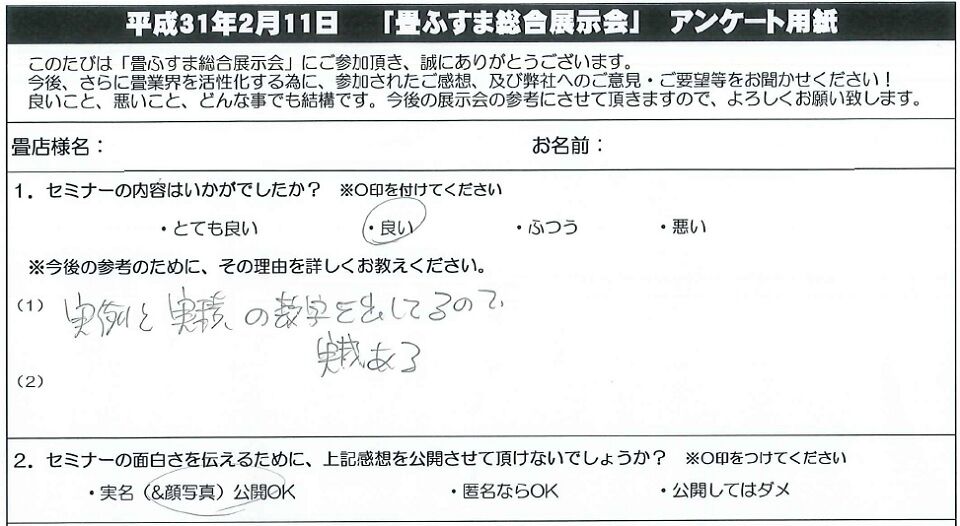 平成31年2月11日 「畳ふすま総合展示会」 アンケート用紙
このたびは「畳ふすま総合展示会」にご参加頂き、誠にありがとうございます。
今後、さらに畳業界を活性化する為に、参加されたご感想、及び弊社へのご意見・ご要望等をお聞かせください！
良いこと、悪いこと、どんな事でも結構です。今後の展示会の参考にさせて頂きますので、よろしくお願い致します。
畳店様名： お名前：
1．セミナーの内容はいかがでしたか？ ※〇印を付けてください
・とても良い ・良い ・ふつう ・悪い
※今後の参考のために、その理由を詳しくお教えください。
(1) 実例と実績の数字を出してるので
実感ある
(2)
2．セミナーの面白さを伝えるために、上記感想を公開させて頂けないでしょうか？ ※〇印をつけてください
・実名（&顔写真）公開OK ・匿名ならOK ・公開してはダメ